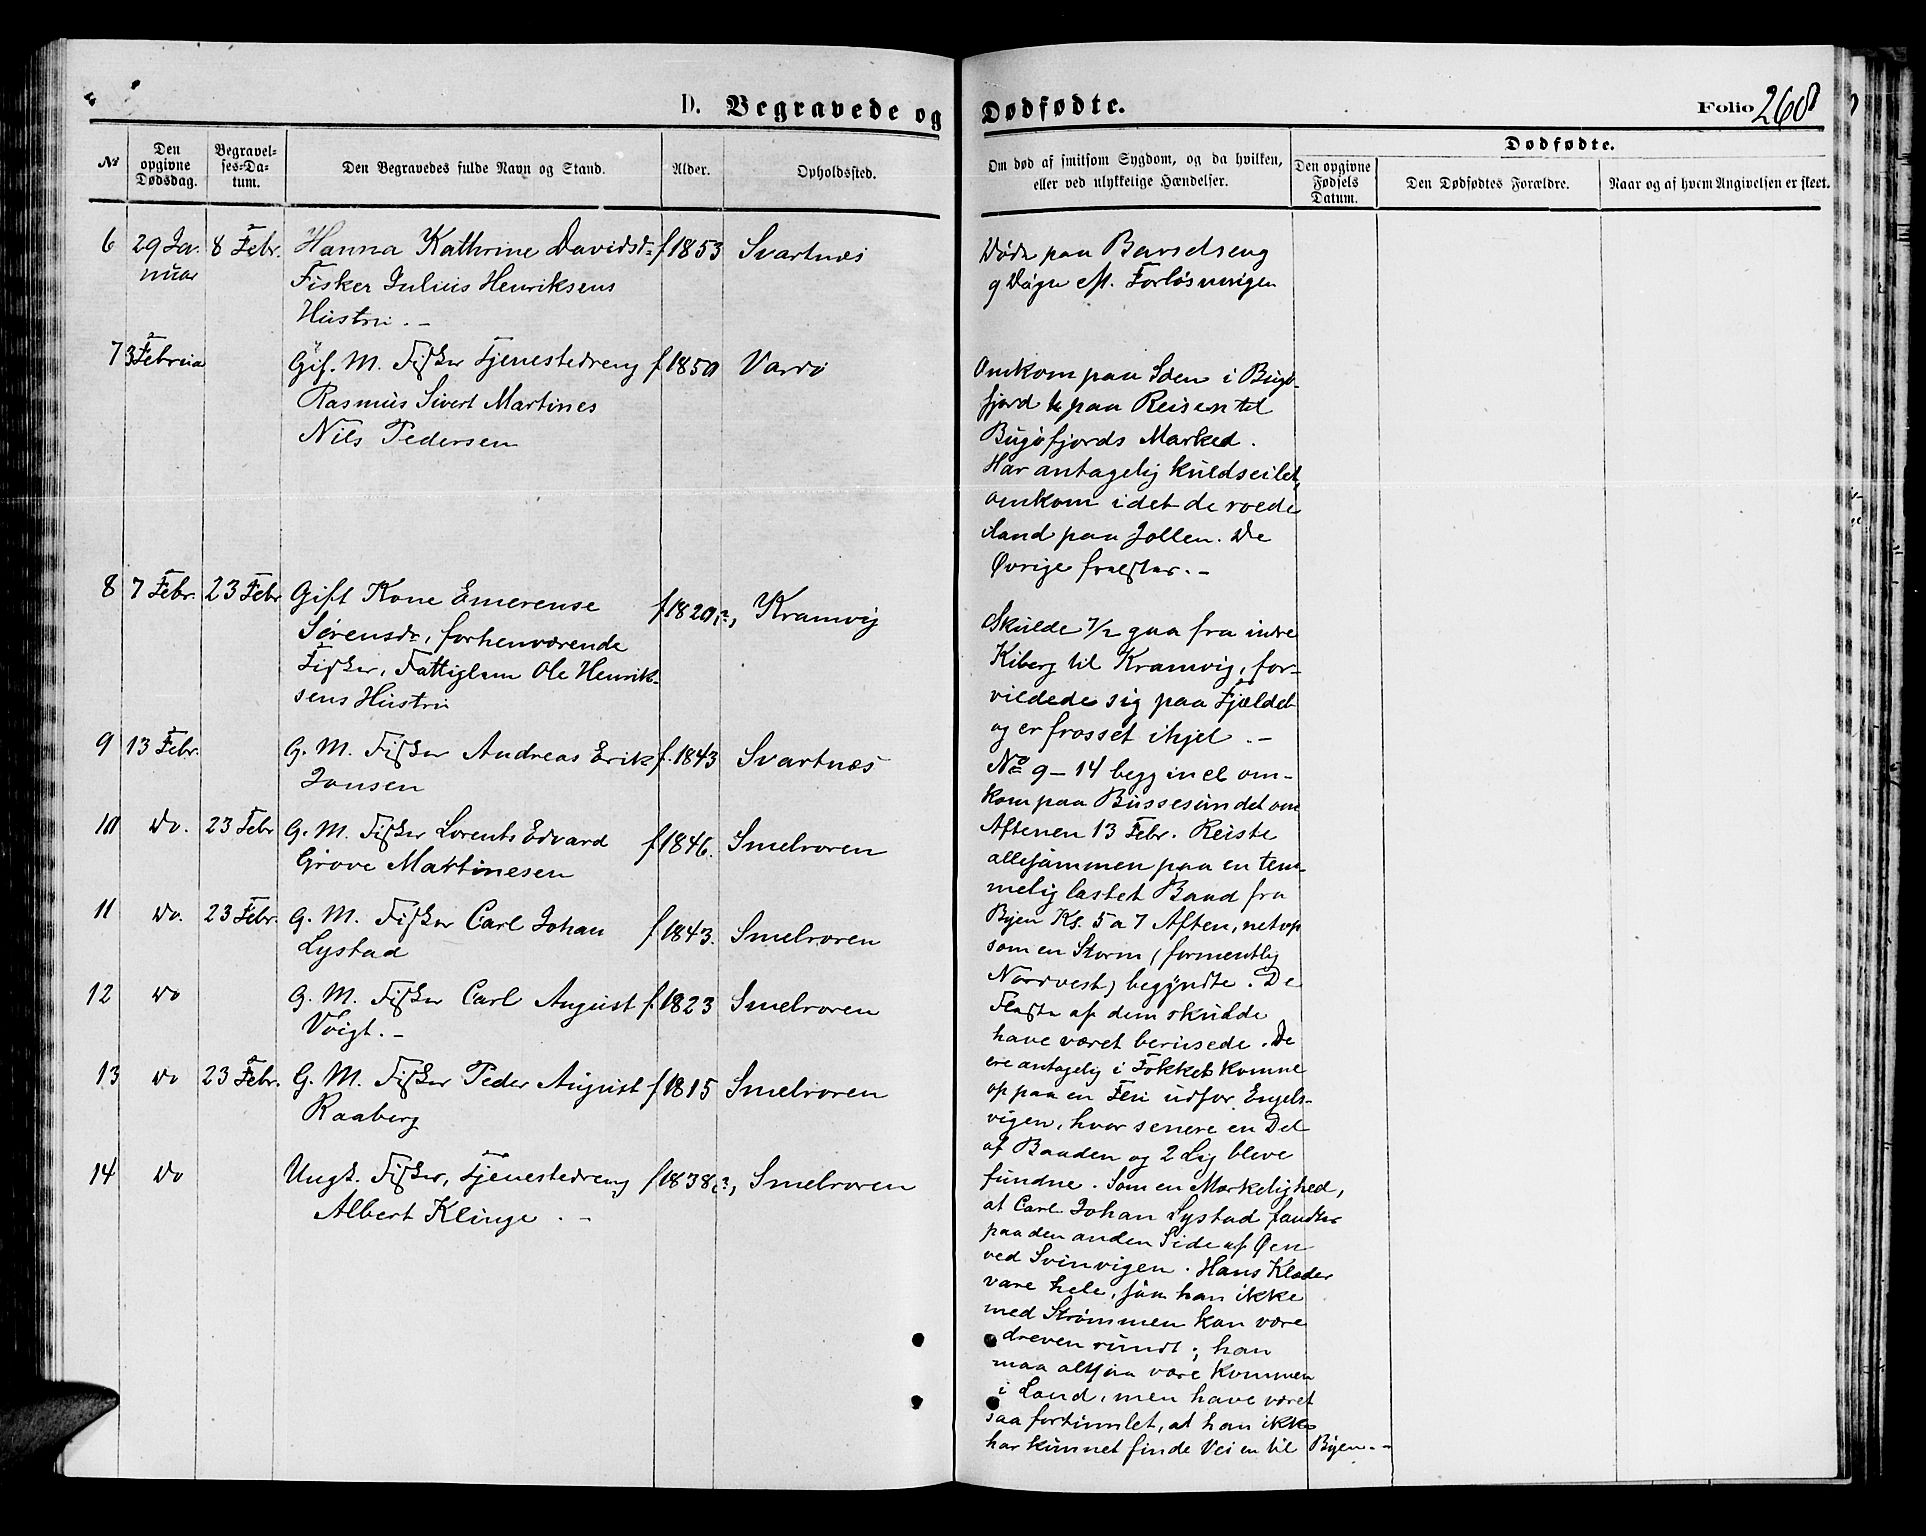 D. Begravede og Dødfødte.
Folio 268
No
Den opgivne Dødsdag.
Begravelses-Datum.
Den Begravedes fulde Navn og Stand.
Alder.
Opholdssted.
Om død af smitsom Sygdom, og da hvilken,
eller ved ulykkelige Hændelser.
Dødfødte.
Den opgivne Fødsels Datum.
Den Dødfødtes Forældre.
Naar og af hvem Angivelsen er skeet.
6 29 Ja- 8 Febr. Hanna Kathrine Davidsd. f 1853 Svartnæs
nuar Fisker Julius Henriksens
Hustru. -
7 3 Februa Gif. M. Fisker Tjenestedreng f 1850 Vardø
Rasmus Sivert Martines
Nils Pedersen
8 7 Febr. 23 Febr Gift Kone Emerense f 1820,?, Kramvig
Sørensdr, forhenværende
Fisker, Fattiglem Ole Henrik-
sens Hustru
9 13 Febr. G. M. Fisker Andreas Erik f. 1843 Svartnæs
Jonsen
10 Do. 23 Febr G. M. Fisker Lorents Edvard f 1846. Smelroren
Grove Martinesen
11 Do. 23 Febr. G. M. Fisker Carl Johan f 1843. Smelroren
Lystad
12 Do G. M. Fisker Carl August f. 1823 Smelroren
Voigt. -
13 Do 23 Febr. G. M. Fisker Peder August f 1815 Smelroren
Raaberg
14 Do Ungk. Fisker, Tjenestedreng f 1838,?, Smelroren
Albert Klinge. -
Døde paa Barselseng
9 Dage eft. Forløsningen
Omkom paa Søen i Bugø-
fjord paa Reisen til
Bugøfjords Marked.
Har antagelig kuldseilet,
omkom idet de roede
iland paa Jollen. De
Øvrige frelstes. -
Skulde 7/2 gaa fra indre
Kiberg til Kramvig, for-
vildede sig paa Fjeldet
og er frosset ihjel. -
No 9 - 14 begg incl om-
kom paa Bussesundet om
Aftenen 13 Febr. Reiste
allesammen paa en tem-
melig lastet Baad fra
Byen Kl. 5 a 7 Aften, netop
som en Storm (formentlig
Nordvest) begyndte. De
Fleste af dem skulde
have været berusede. De
ere antagelig i Fokket komne
op paa en Flu udfor Engels-
vigen, hvor senere en Del
af Baaden og 2 Lig bleve
fundne. Som en Mærkelighed,
at Carl Johan Lystad fandtes
paa den anden Side af Øen
ved Svinvigen. Hans Klæder
vare hele, saa han ikke
med Strømmen kan være
dreven rundt; han
maa altsaa være kommen
i Land, men have været
saa fortumlet, at han ikke
har kunnet finde Veien til Byen. -